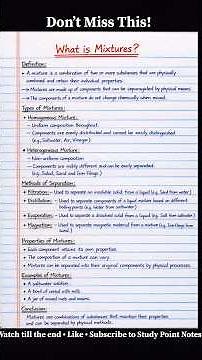 Don't Miss This!
What is Mixtures?
Definition:
• A mixture is a combination of two or more substances that are physically
combined and retain their individual properties.
→ Mixtures are made up of components that can be separated by physical means.
→ The components of a mixture do not change chemically when mixed.
Types of Mixtures:
• Homogeneous Mixture:
– Uniform composition throughout.
– Components are evenly distributed and cannot be easily distinguished
(e.g., Saltwater, Air, Vinegar)
• Heterogeneous Mixture:
– Non-uniform composition
– Components are visibly different and can be easily separated.
(e.g., Salad, Sand and Iron Filings)
Methods of Separation:
• Filtration: – Used to separate an insoluble solid from a liquid (e.g., Sand from water)
• Distillation: – Used to separate components of a liquid mixture based on different
boiling points (e.g., Water from saltwater)
• Evaporation: – Used to separate a dissolved solid from a liquid (e.g., Salt from saltwater)
• Magnetism: – Used to separate magnetic material from a mixture (e.g., Iron filings from
sand)
Properties of Mixtures:
• Each component retains its own properties.
• The composition of a mixture can vary.
• Mixtures can be separated into their original components by physical processes.
Examples of Mixtures:
• A saltwater solution
• A bowl of cereal with milk
• A jar of mixed nuts and
Conclusion:
Mixtures are combinations of substances that maintain their properties
and can be separated by physical methods.
Watch till the end • Like • Subscribe to Study Point Notes